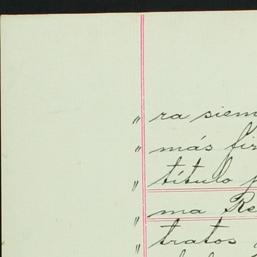 " ra siem
" más fir
" título p
" ma Re
" tratos